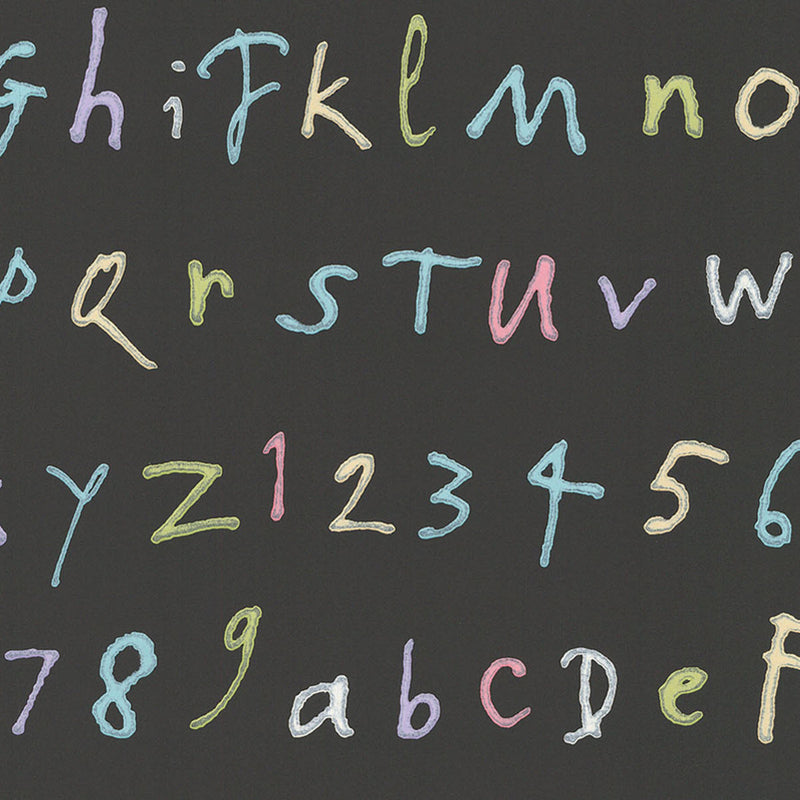 G h i J k l M n o
p Q r s T U v w
y Z 1 2 3 4 5 6
7 8 9 a b c D e F